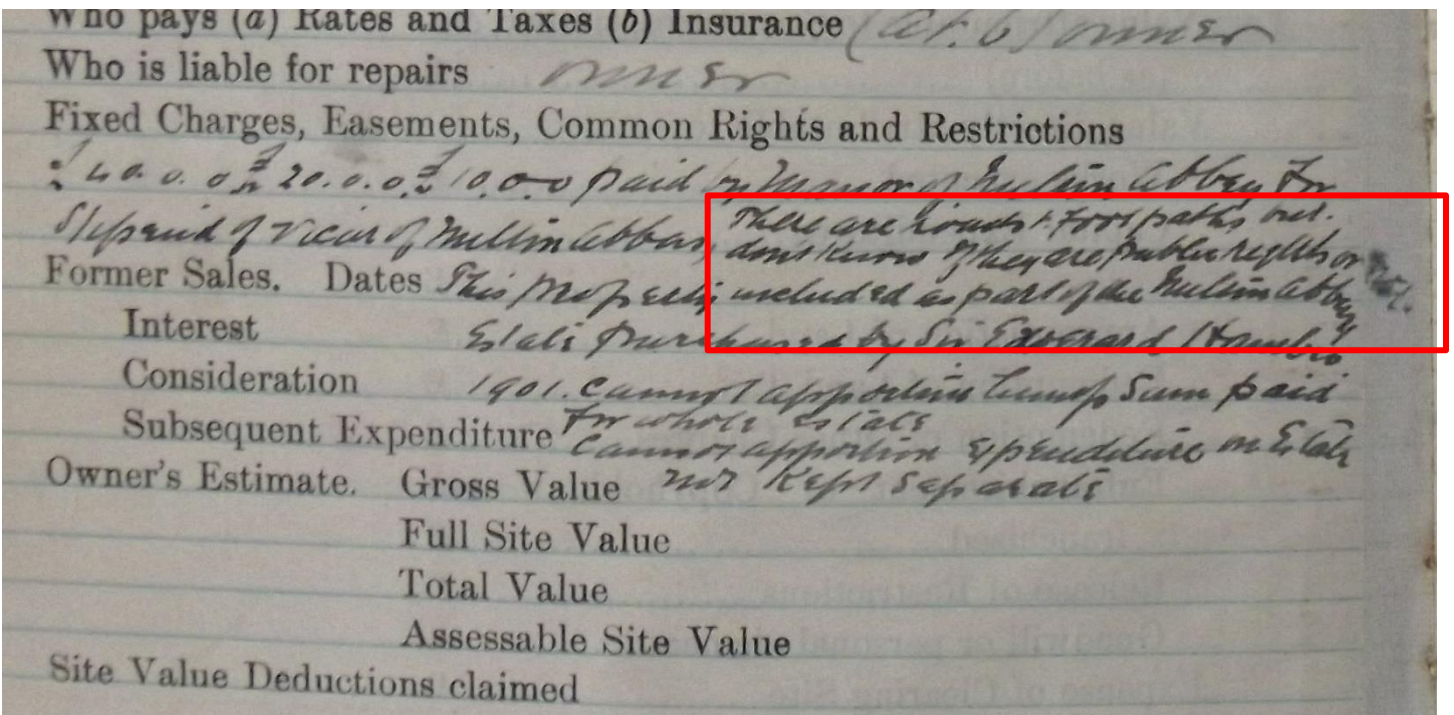 Who pays (a) Rates and Taxes (b) Insurance (a & b) Owner
Who is liable for repairs Owner
Fixed Charges, Easements, Common Rights and Restrictions
£40.0.0 £20.0.0 £10.0.0 paid by Manor of Milton Abbey for
Stipend of Vicar of Milton Abbas
There are roads & foot paths but
don't know if they are public rights or not.
Former Sales. Dates This Property included as part of the Milton Abbey
Interest Estate purchased by Sir Everard Hambro
Consideration 1901. Cannot apportion lump sum paid
for whole estate
Subsequent Expenditure Cannot apportion expenditure on Estate
Owner's Estimate. Gross Value not kept separate
Full Site Value
Total Value
Assessable Site Value
Site Value Deductions claimed